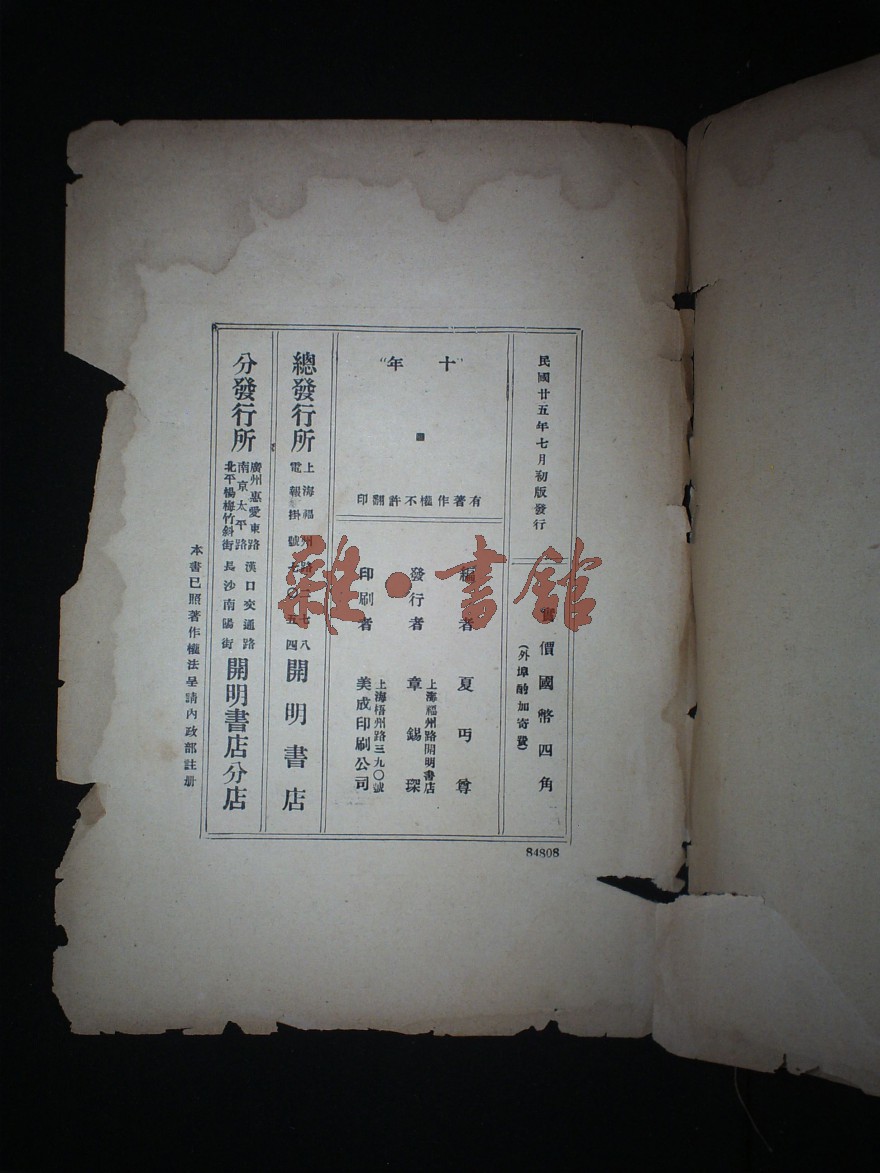 民國廿五年七月初版發行
實價國幣四角
(外埠酌加寄費)
"十年"
有著作權不許翻印
編者 夏丏尊
發行者 章錫琛
上海福州路開明書店
印刷者 美成印刷公司
上海梧州路三九〇號
總發行所 上海福州路二七八 電報掛號七〇五四 開明書店
分發行所 廣州惠愛東路 南京太平路 北平楊梅竹斜街 漢口交通路 長沙南陽街 開明書店分店
本書已照著作權法呈請內政部註册
84808
雜·書館